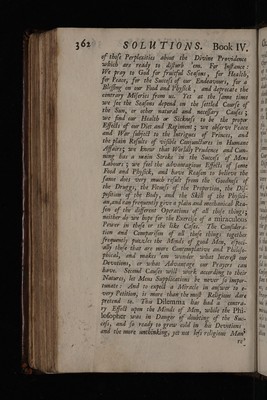 362 SOLUTIONS. Book IV.
of these Perplexities about the Divine Providence
which are ready to disturb 'em. For Instance:
We pray to God for fruitful Seasons, for Health,
for Peace, for the Success of our Endeavours, for a
Blessing on our Food and Physick, and deprecate the
contrary Miseries from us. Yet at the same time
we see the Seasons depend on the settled Course of
the Sun, or other natural and necessary Causes;
we find our Health or Sickness to be the proper
Effects of our Diet and Regiment; we observe Peace
and War subject to the Intrigues of Princes, and
the plain Results of visible Conjunctures in Humane
Affairs; we know that Worldly Prudence and Cun-
ning has a main Stroke in the Success of Mens
Labours; we feel the advantagious Effects of some
Food and Physick, and have Reason to believe the
same does very much result from the Goodness of
the Druggs, the Fitness of the Proportion, the Dis-
position of the Body, and the Skill of the Physici-
an, and can frequently give a plain and mechanical Rea-
son of the different Operations of all these things;
neither do we hope for the Exercise of a miraculous
Power in these or the like Cases. The Considera-
tion and Comparison of all these things together
frequently puzzles the Minds of good Men, especi-
ally those that are more Contemplative and Philoso-
phical, and makes 'em wonder what Interest our
Devotions, or what Advantage our Prayers can
have. Second Causes will work according to their
Natures, let Mens Supplications be never so impor-
tunate: And to expect a Miracle in answer to e-
very Petition, is more than the most Religious dare
pretend to. This Dilemma has had a contra-
ry Effect upon the Minds of Men, while the Phi-
losopher was in Danger of doubting of the Suc-
cess, and so ready to grow cold in his Devotions
and the more unthinking, yet not less religious Men